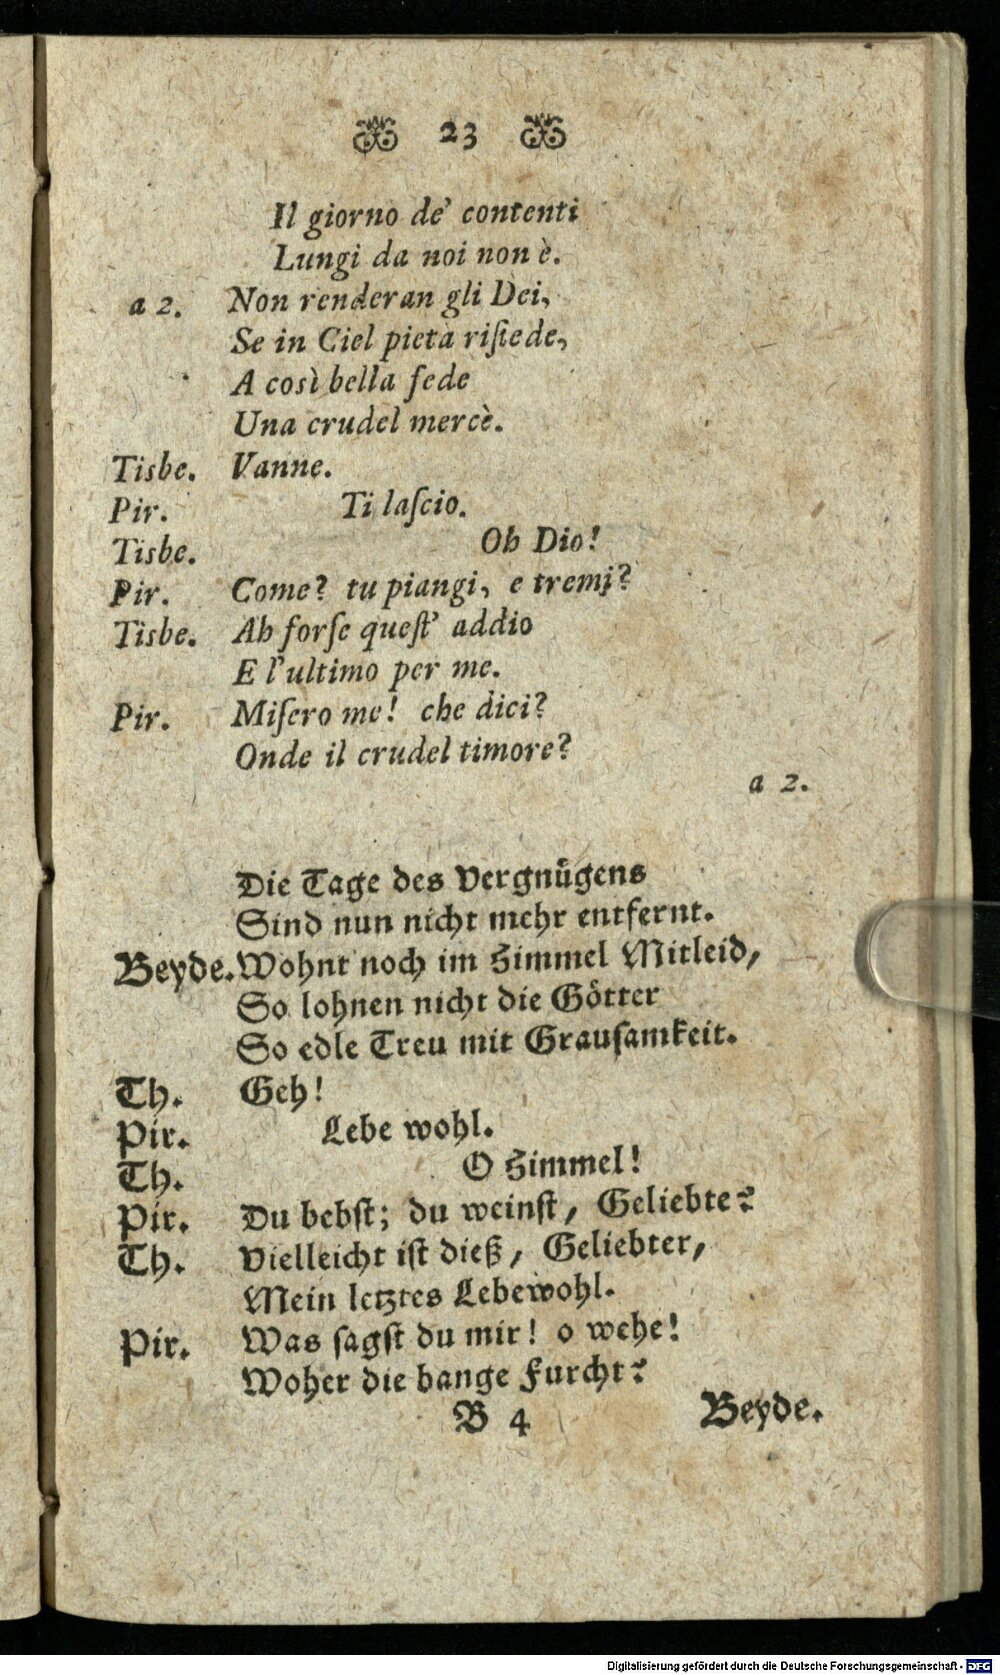 23
Il giorno de' contenti
Lungi da noi non è.
a 2. Non renderan gli Dei,
Se in Ciel pietà riſiede,
A così bella fede
Una crudel mercè.
Tisbe. Vanne.
Pir. Ti laſcio.
Tisbe. Oh Dio!
Pir. Come? tu piangi, e tremi?
Tisbe. Ah forſe queſt' addio
E l'ultimo per me.
Pir. Miſero me! che dici?
Onde il crudel timore?
a 2.
Die Tage des Vergnügens
Sind nun nicht mehr entfernt.
Beyde. Wohnt noch im Himmel Mitleid,
So lohnen nicht die Götter
So edle Treu mit Grauſamkeit.
Th. Geh!
Pir. Lebe wohl.
Th. O Himmel!
Pir. Du bebſt; du weinſt, Geliebte?
Th. Vielleicht iſt dieß, Geliebter,
Mein letztes Lebewohl.
Pir. Was ſagſt du mir! o wehe!
Woher die bange Furcht?
B 4 Beyde.
Digitalisierung gefördert durch die Deutsche Forschungsgemeinschaft - DFG